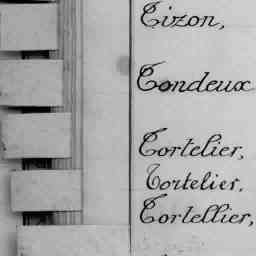 Tizon,
Tondeux
Tortelier,
Tortelier,
Tortellier,